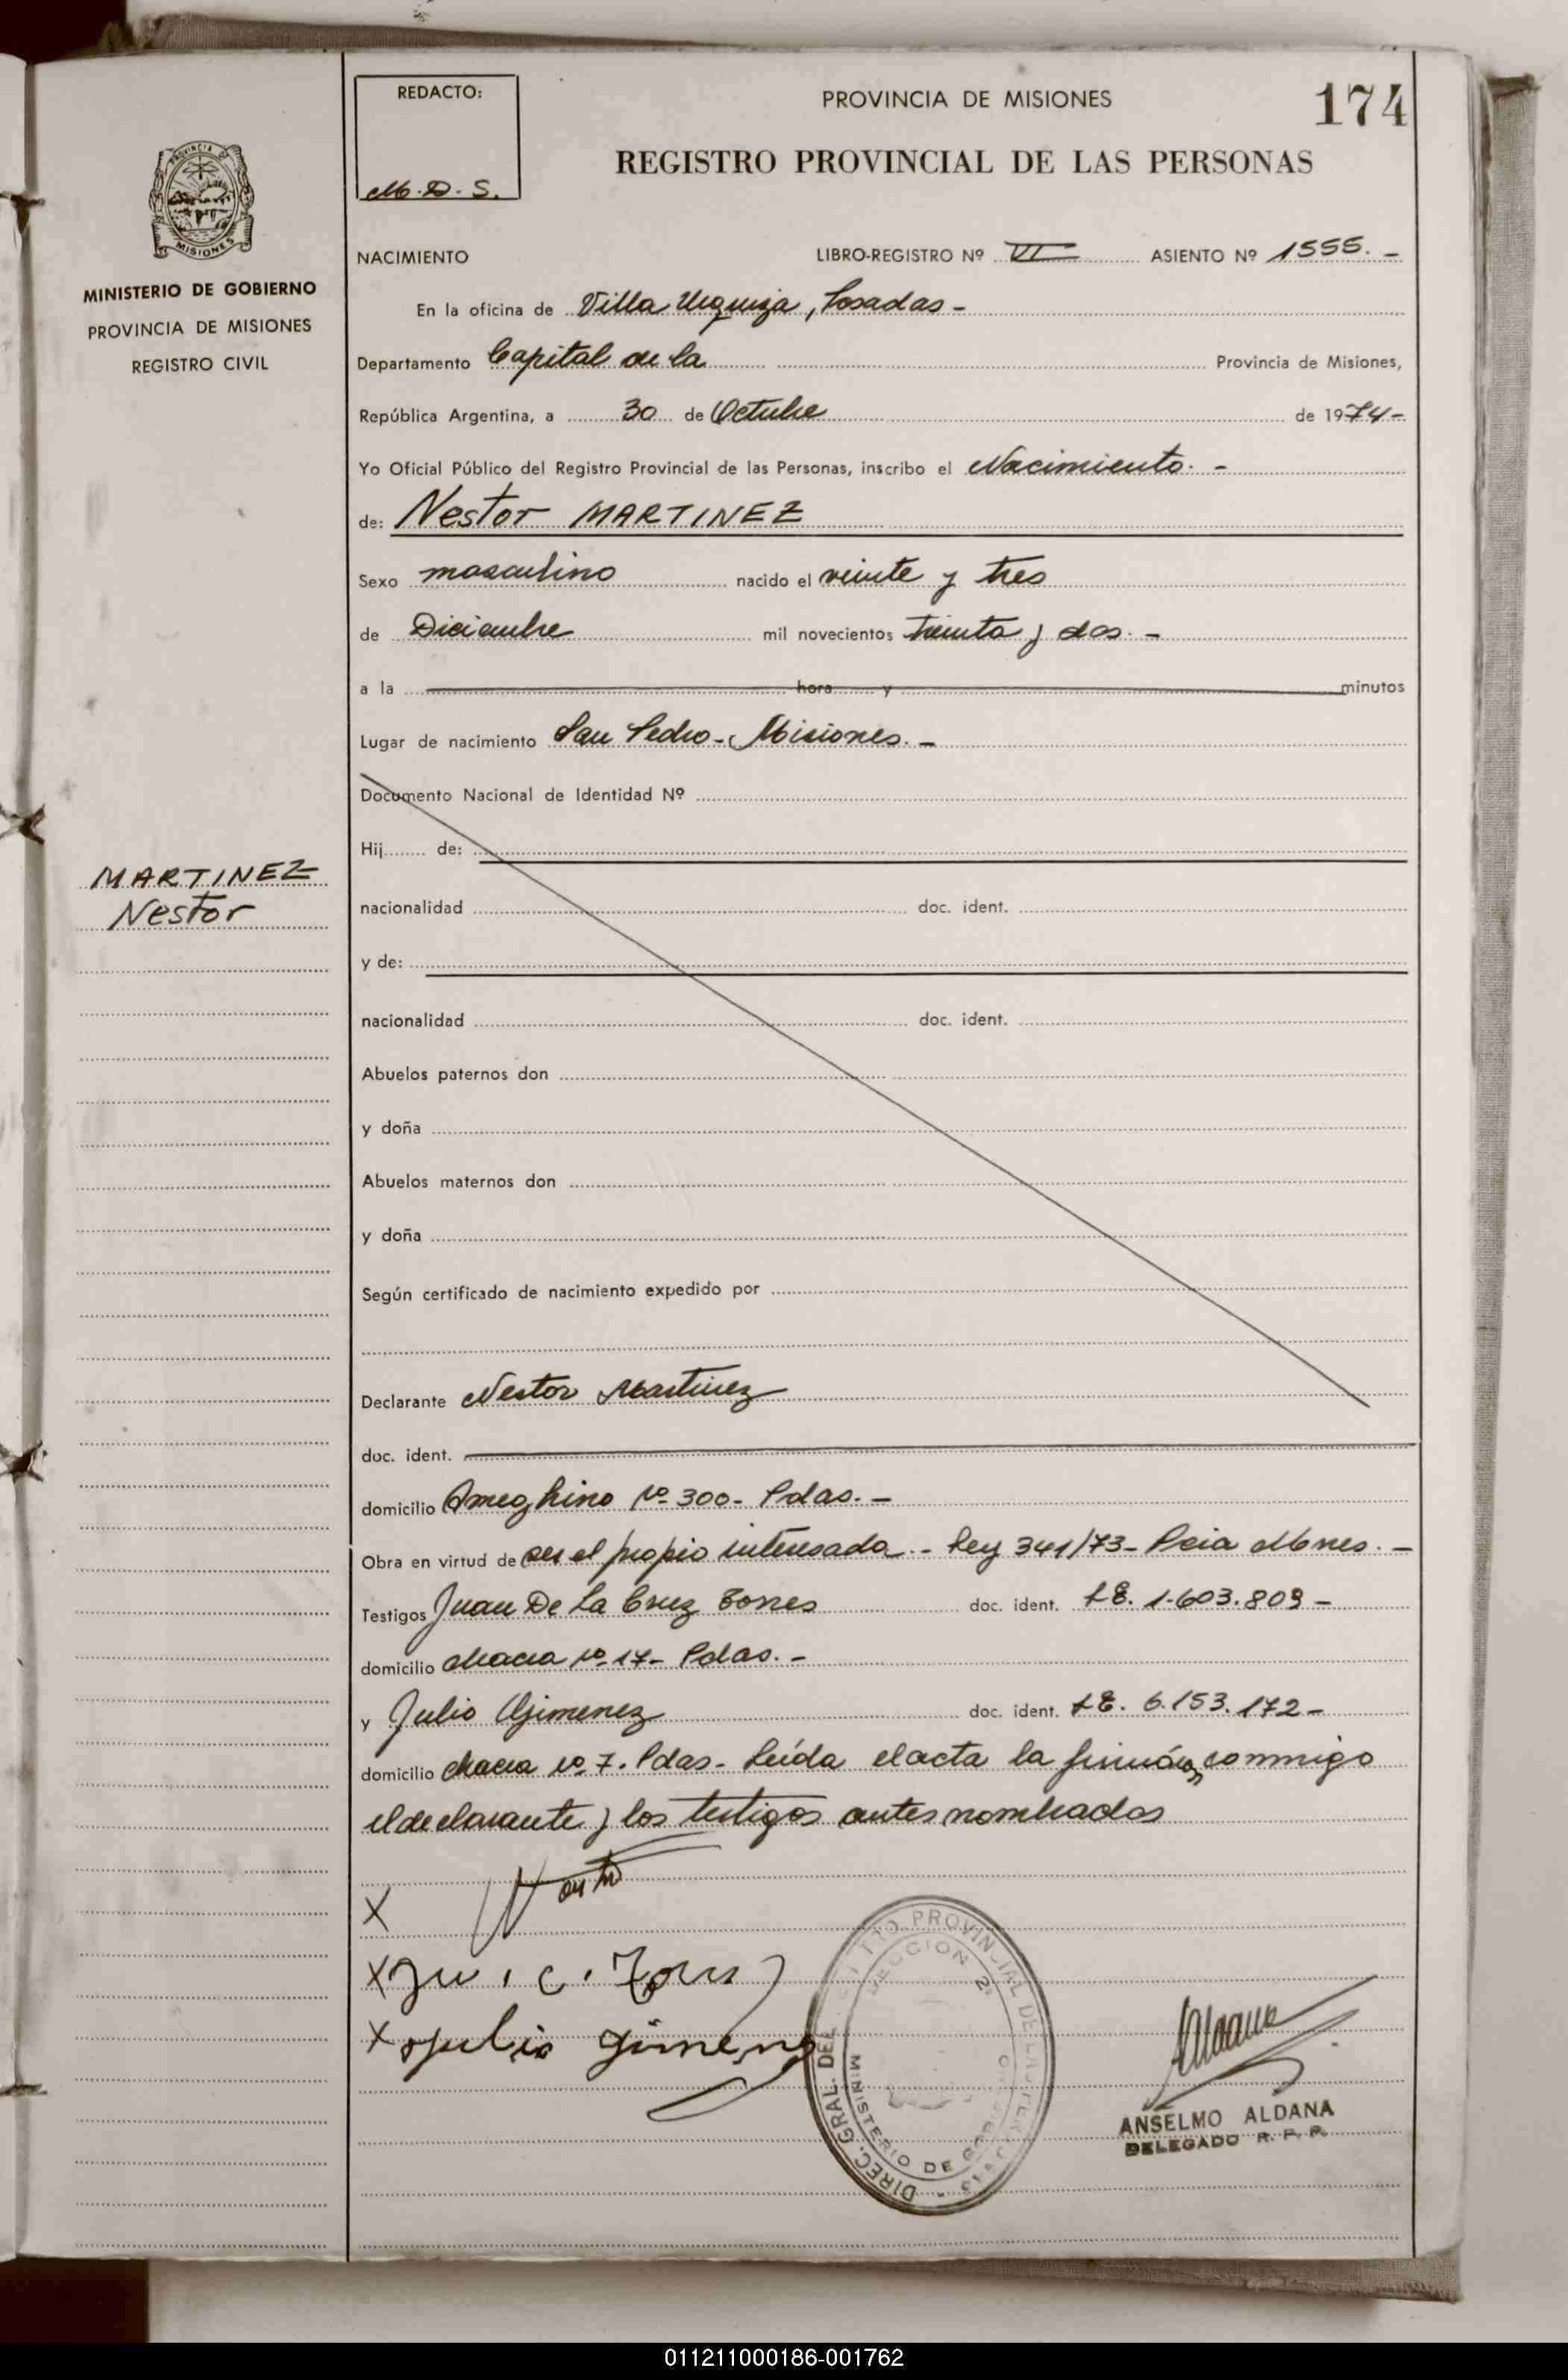 REDACTO:
M. D. S.
PROVINCIA DE MISIONES
174
REGISTRO PROVINCIAL DE LAS PERSONAS
PROVINCIA DE
MISIONES
MINISTERIO DE GOBIERNO
PROVINCIA DE MISIONES
REGISTRO CIVIL
NACIMIENTO LIBRO-REGISTRO Nº VI ASIENTO Nº 1555. -
En la oficina de Villa Urquiza, Posadas -
Departamento Capital de la Provincia de Misiones,
República Argentina, a 30 de Octubre de 1974 -
Yo Oficial Público del Registro Provincial de las Personas, inscribo el Nacimiento. -
de: Nestor MARTINEZ
Sexo masculino nacido el veinte y tres
de Diciembre mil novecientos treinta y dos. -
a la hora y minutos
Lugar de nacimiento San Pedro - Misiones. -
Documento Nacional de Identidad Nº
Hij de:
MARTINEZ
Nestor
nacionalidad doc. ident.
y de:
nacionalidad doc. ident.
Abuelos paternos don
y doña
Abuelos maternos don
y doña
Según certificado de nacimiento expedido por
Declarante Nestor Martinez
doc. ident.
domicilio Ameghino Nº 300 - Pdas. -
Obra en virtud de ser el propio interesado. - Ley 341/73 - Pcia Mnes. -
Testigos Juan De La Cruz Torres doc. ident. LE. 1.603.809 -
domicilio chacra Nº 17 - Pdas. -
y Julio Gimenez doc. ident. LE. 6.153.172 -
domicilio chacra Nº 7. Pdas. - Leída el acta la firman conmigo
el declarante y los testigos antes nombrados
X
X Ju. C. Torres
X Julio Gimenez
DIREC. GRAL. DEL REGISTRO PROVINCIAL DE LAS PERSONAS
SECCION 2ª
MINISTERIO DE GOBIERNO
Aldana
ANSELMO ALDANA
DELEGADO R. P. P.
011211000186-001762